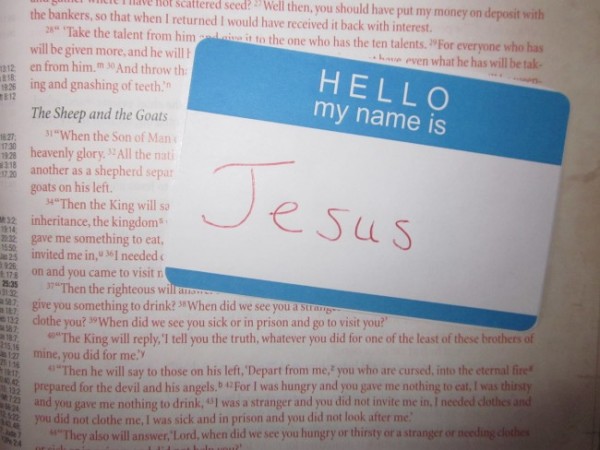 where I have not scattered seed? 27Well then, you should have put my money on deposit with
the bankers, so that when I returned I would have received it back with interest.
28"'Take the talent from him and give it to the one who has the ten talents. 29For everyone who has
will be given more, and he will h
have, even what he has will be tak-
en from him.m 30And throw th
ing and gnashing of teeth.'n
The Sheep and the Goats
31"When the Son of Man
heavenly glory. 32All the nati
another as a shepherd separ
goats on his left.
34"Then the King will sa
inheritance, the kingdom
gave me something to eat,
invited me in,u 36I needed c
on and you came to visit
37"Then the righteous will
give you something to drink? 38When did we see you a
clothe you? 39When did we see you sick or in prison and go to visit you?'
40"The King will reply, 'I tell you the truth, whatever you did for one of the least of these brothers of
mine, you did for me.'y
41"Then he will say to those on his left, 'Depart from me,z you who are cursed, into the eternal firea
prepared for the devil and his angels.b 42For I was hungry and you gave me nothing to eat, I was thirsty
and you gave me nothing to drink, 43I was a stranger and you did not invite me in, I needed clothes and
you did not clothe me, I was sick and in prison and you did not look after me.'
44"They also will answer, 'Lord, when did we see you hungry or thirsty or a stranger or needing clothes
HELLO
my name is
Jesus